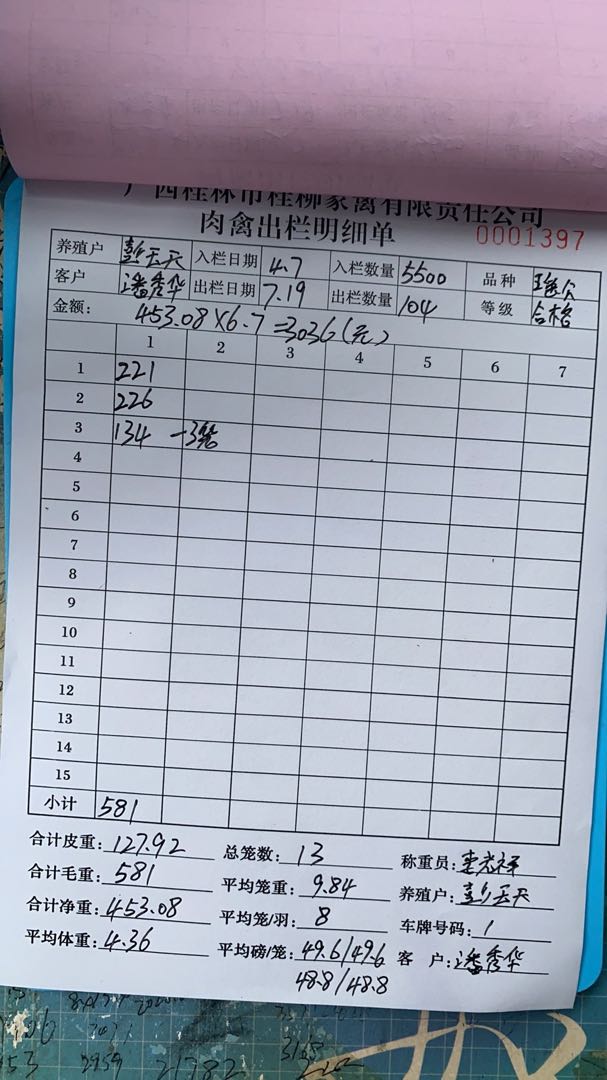 广西桂林市桂柳家禽有限责任公司
肉禽出栏明细单 0001397
养殖户 彭玉天 入栏日期 4.7 入栏数量 5500 品种
客户 潘秀华 出栏日期 7.19 出栏数量 104 等级 合格
金额: 453.08×6.7=3036(元)
1 2 3 4 5 6 7
1 221
2 226
3 134 -3笼
4
5
6
7
8
9
10
11
12
13
14
15
小计 581
合计皮重: 127.92 总笼数: 13 称重员:
合计毛重: 581 平均笼重: 9.84 养殖户: 彭玉天
合计净重: 453.08 平均笼/羽: 8 车牌号码: 1
平均体重: 4.36 平均磅/笼: 49.6/49.6 客 户: 潘秀华
48.8/48.8